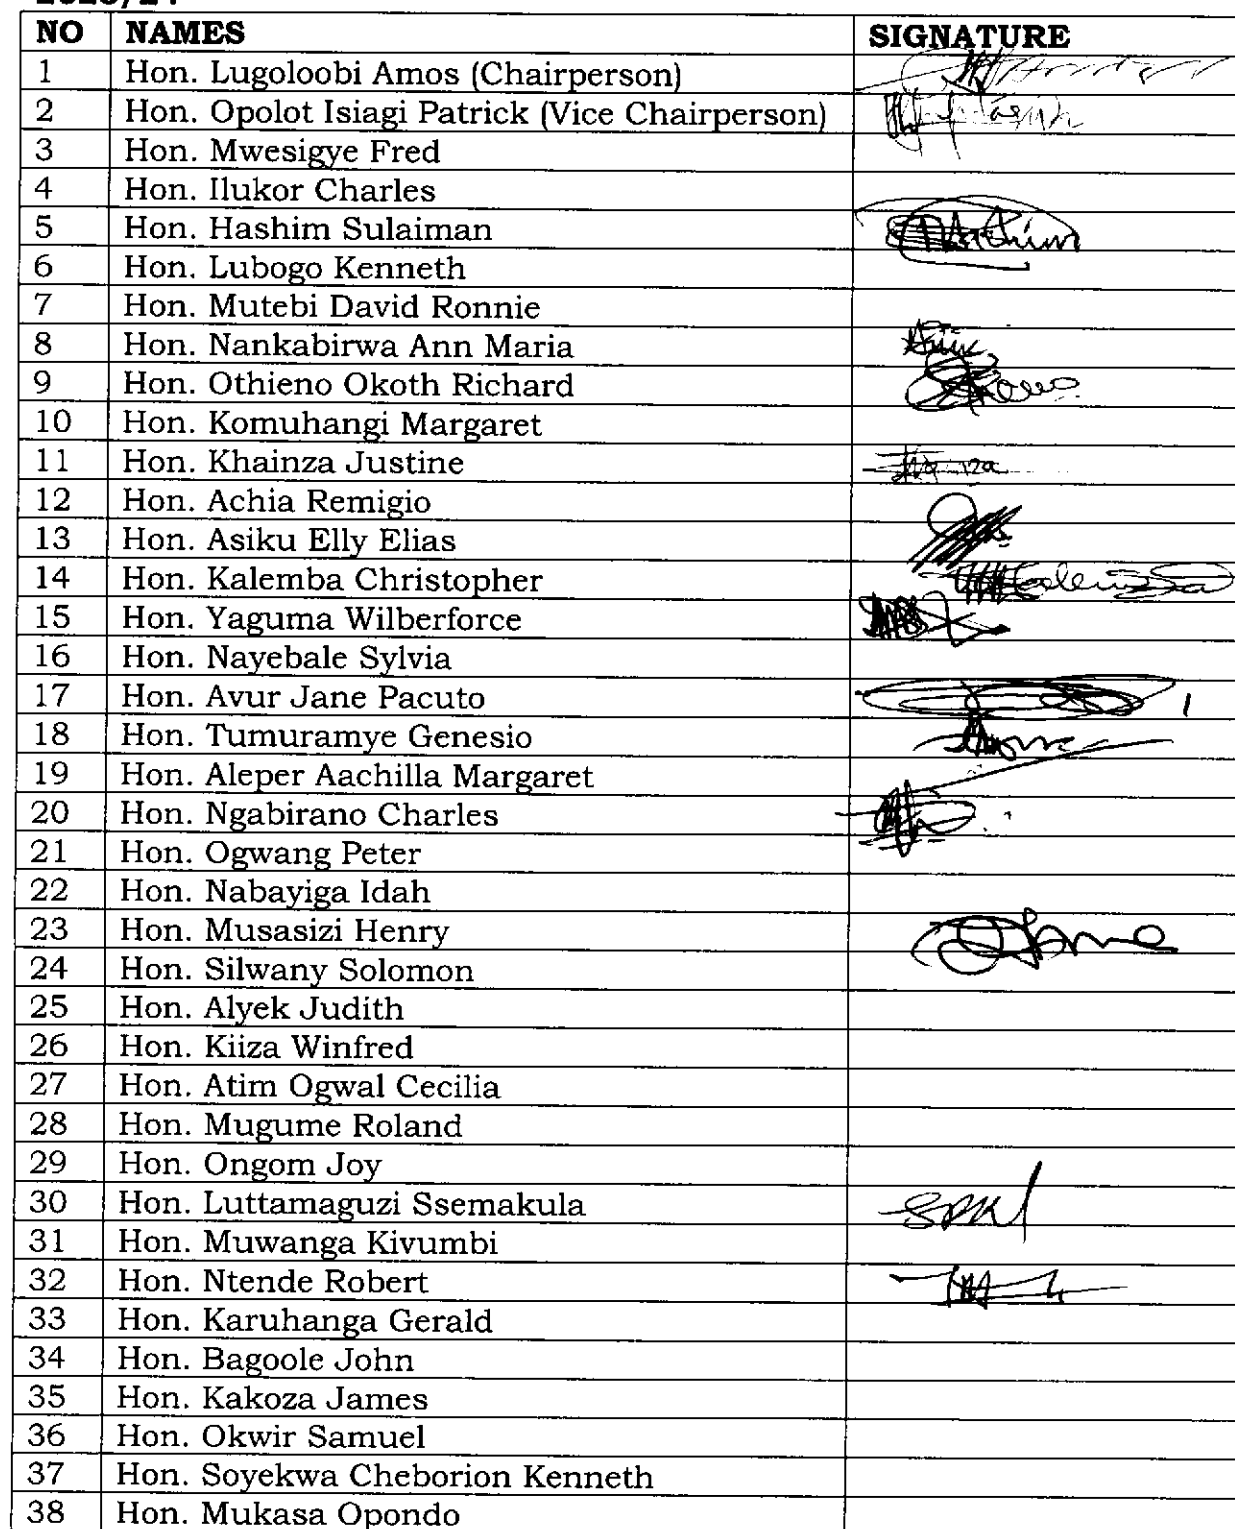 NO NAMES SIGNATURE
1 Hon. Lugoloobi Amos (Chairperson)
2 Hon. Opolot Isiagi Patrick (Vice Chairperson)
3 Hon. Mwesigye Fred
4 Hon. Ilukor Charles
5 Hon. Hashim Sulaiman
6 Hon. Lubogo Kenneth
7 Hon. Mutebi David Ronnie
8 Hon. Nankabirwa Ann Maria
9 Hon. Othieno Okoth Richard
10 Hon. Komuhangi Margaret
11 Hon. Khainza Justine
12 Hon. Achia Remigio
13 Hon. Asiku Elly Elias
14 Hon. Kalemba Christopher
15 Hon. Yaguma Wilberforce
16 Hon. Nayebale Sylvia
17 Hon. Avur Jane Pacuto
18 Hon. Tumuramye Genesio
19 Hon. Aleper Aachilla Margaret
20 Hon. Ngabirano Charles
21 Hon. Ogwang Peter
22 Hon. Nabayiga Idah
23 Hon. Musasizi Henry
24 Hon. Silwany Solomon
25 Hon. Alyek Judith
26 Hon. Kiiza Winfred
27 Hon. Atim Ogwal Cecilia
28 Hon. Mugume Roland
29 Hon. Ongom Joy
30 Hon. Luttamaguzi Ssemakula
31 Hon. Muwanga Kivumbi
32 Hon. Ntende Robert
33 Hon. Karuhanga Gerald
34 Hon. Bagoole John
35 Hon. Kakoza James
36 Hon. Okwir Samuel
37 Hon. Soyekwa Cheborion Kenneth
38 Hon. Mukasa Opondo